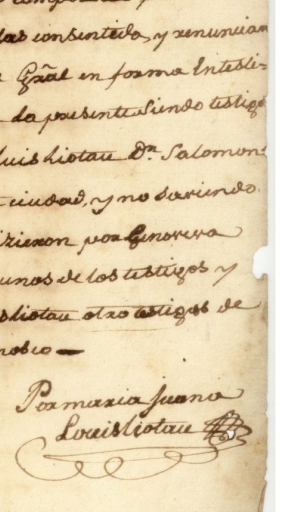 las consentido, y renuncian
Gräl en forma Intesti=
la presente siendo testigo
Luis liotau Dn. Salomon
ciudad, y no saviendo
izieron por Genoveva
unos de los testigos y
liotau otro testigos de
nosco —
Por maria juana
Louis liotau